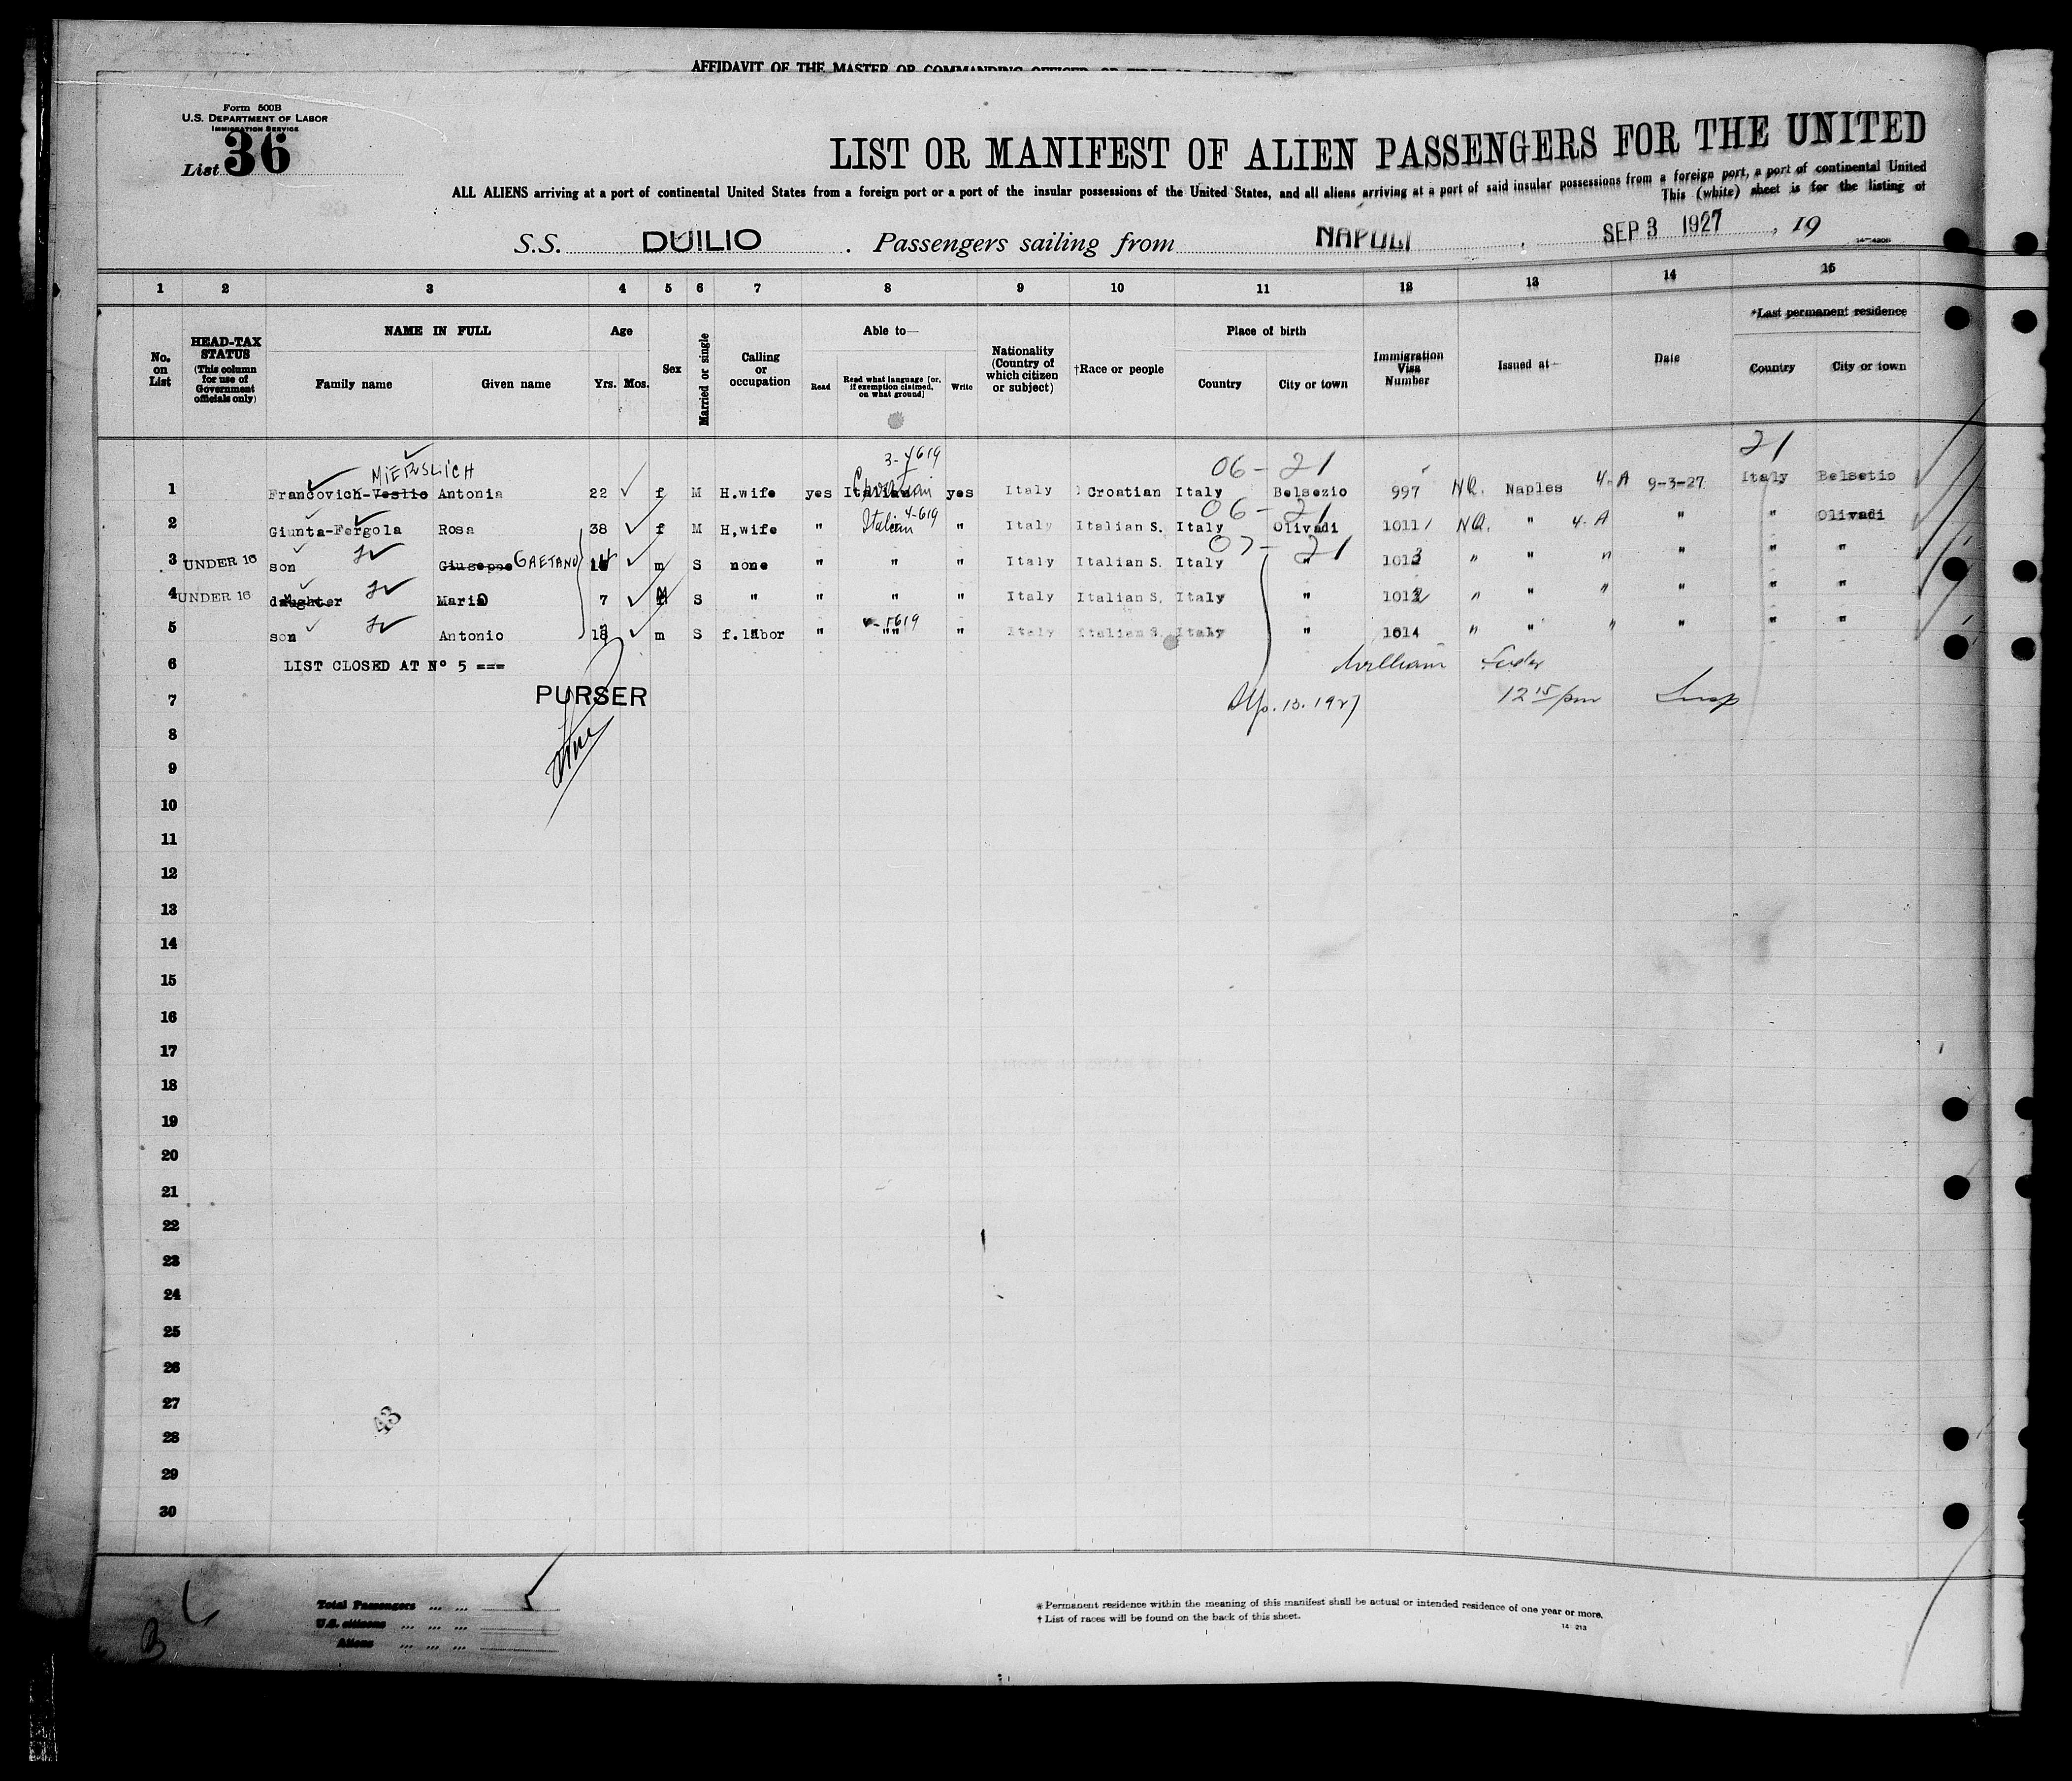 AFFIDAVIT OF THE MASTER OR COMMANDING OFFICER, OR FIRST OR
Form 500B
U.S. DEPARTMENT OF LABOR
IMMIGRATION SERVICE
List 36
LIST OR MANIFEST OF ALIEN PASSENGERS FOR THE UNITED
ALL ALIENS arriving at a port of continental United States from a foreign port or a port of the insular possessions of the United States, and all aliens arriving at a port of said insular possessions from a foreign port, a port of continental United
This (white) sheet is for the listing of
S.S. DUILIO . Passengers sailing from NAPOLI , SEP 3 1927 , 19
1 2 3 4 5 6 7 8 9 10 11 12 13 14 15
No. on List
HEAD-TAX STATUS (This column for use of Government officials only)
NAME IN FULL
Family name Given name
Age
Yrs. Mos.
Sex
Married or single
Calling or occupation
Able to—
Read Read what language [or, if exemption claimed, on what ground] Write
Nationality (Country of which citizen or subject)
†Race or people
Place of birth
Country City or town
Immigration Visa Number
Issued at—
Date
*Last permanent residence
Country City or town
3-4619 06 - 21 21
MIERSLICH
1 Francovich-Veslic Antonia 22 f M H.wife yes Italian yes Italy Croatian Italy Belsezio 997 NQ. Naples 4-A 9-3-27 Italy Belsetio
4-619 06 - 21
2 Giunta-Fergola Rosa 38 f M H,wife " Italian " Italy Italian S. Italy Olivadi 1011 NQ. " 4-A " " Olivadi
07 - 21
3 UNDER 16 son Giuseppe GAETANO 14 m S none " " " Italy Italian S. Italy " 1013 " " " " " "
4 UNDER 16 daughter Mario 7 M S " " " " Italy Italian S. Italy " 1012 " " " " " "
5 son Antonio 18 m S f.labor " "" " Italy Italian S. Italy " 1014 " " " " " "
6 LIST CLOSED AT Nº 5 ===
William
7 PURSER
Sep. 13. 1927 12 15/pm Insp
8
9
10
11
12
13
14
15
16
17
18
19
20
21
22
23
24
25
26
27
43
28
29
30
Total Passengers ... ... 5
U.S. citizens ... ... ...
Aliens ... ... ...
* Permanent residence within the meaning of this manifest shall be actual or intended residence of one year or more.
† List of races will be found on the back of this sheet.
14—213
B